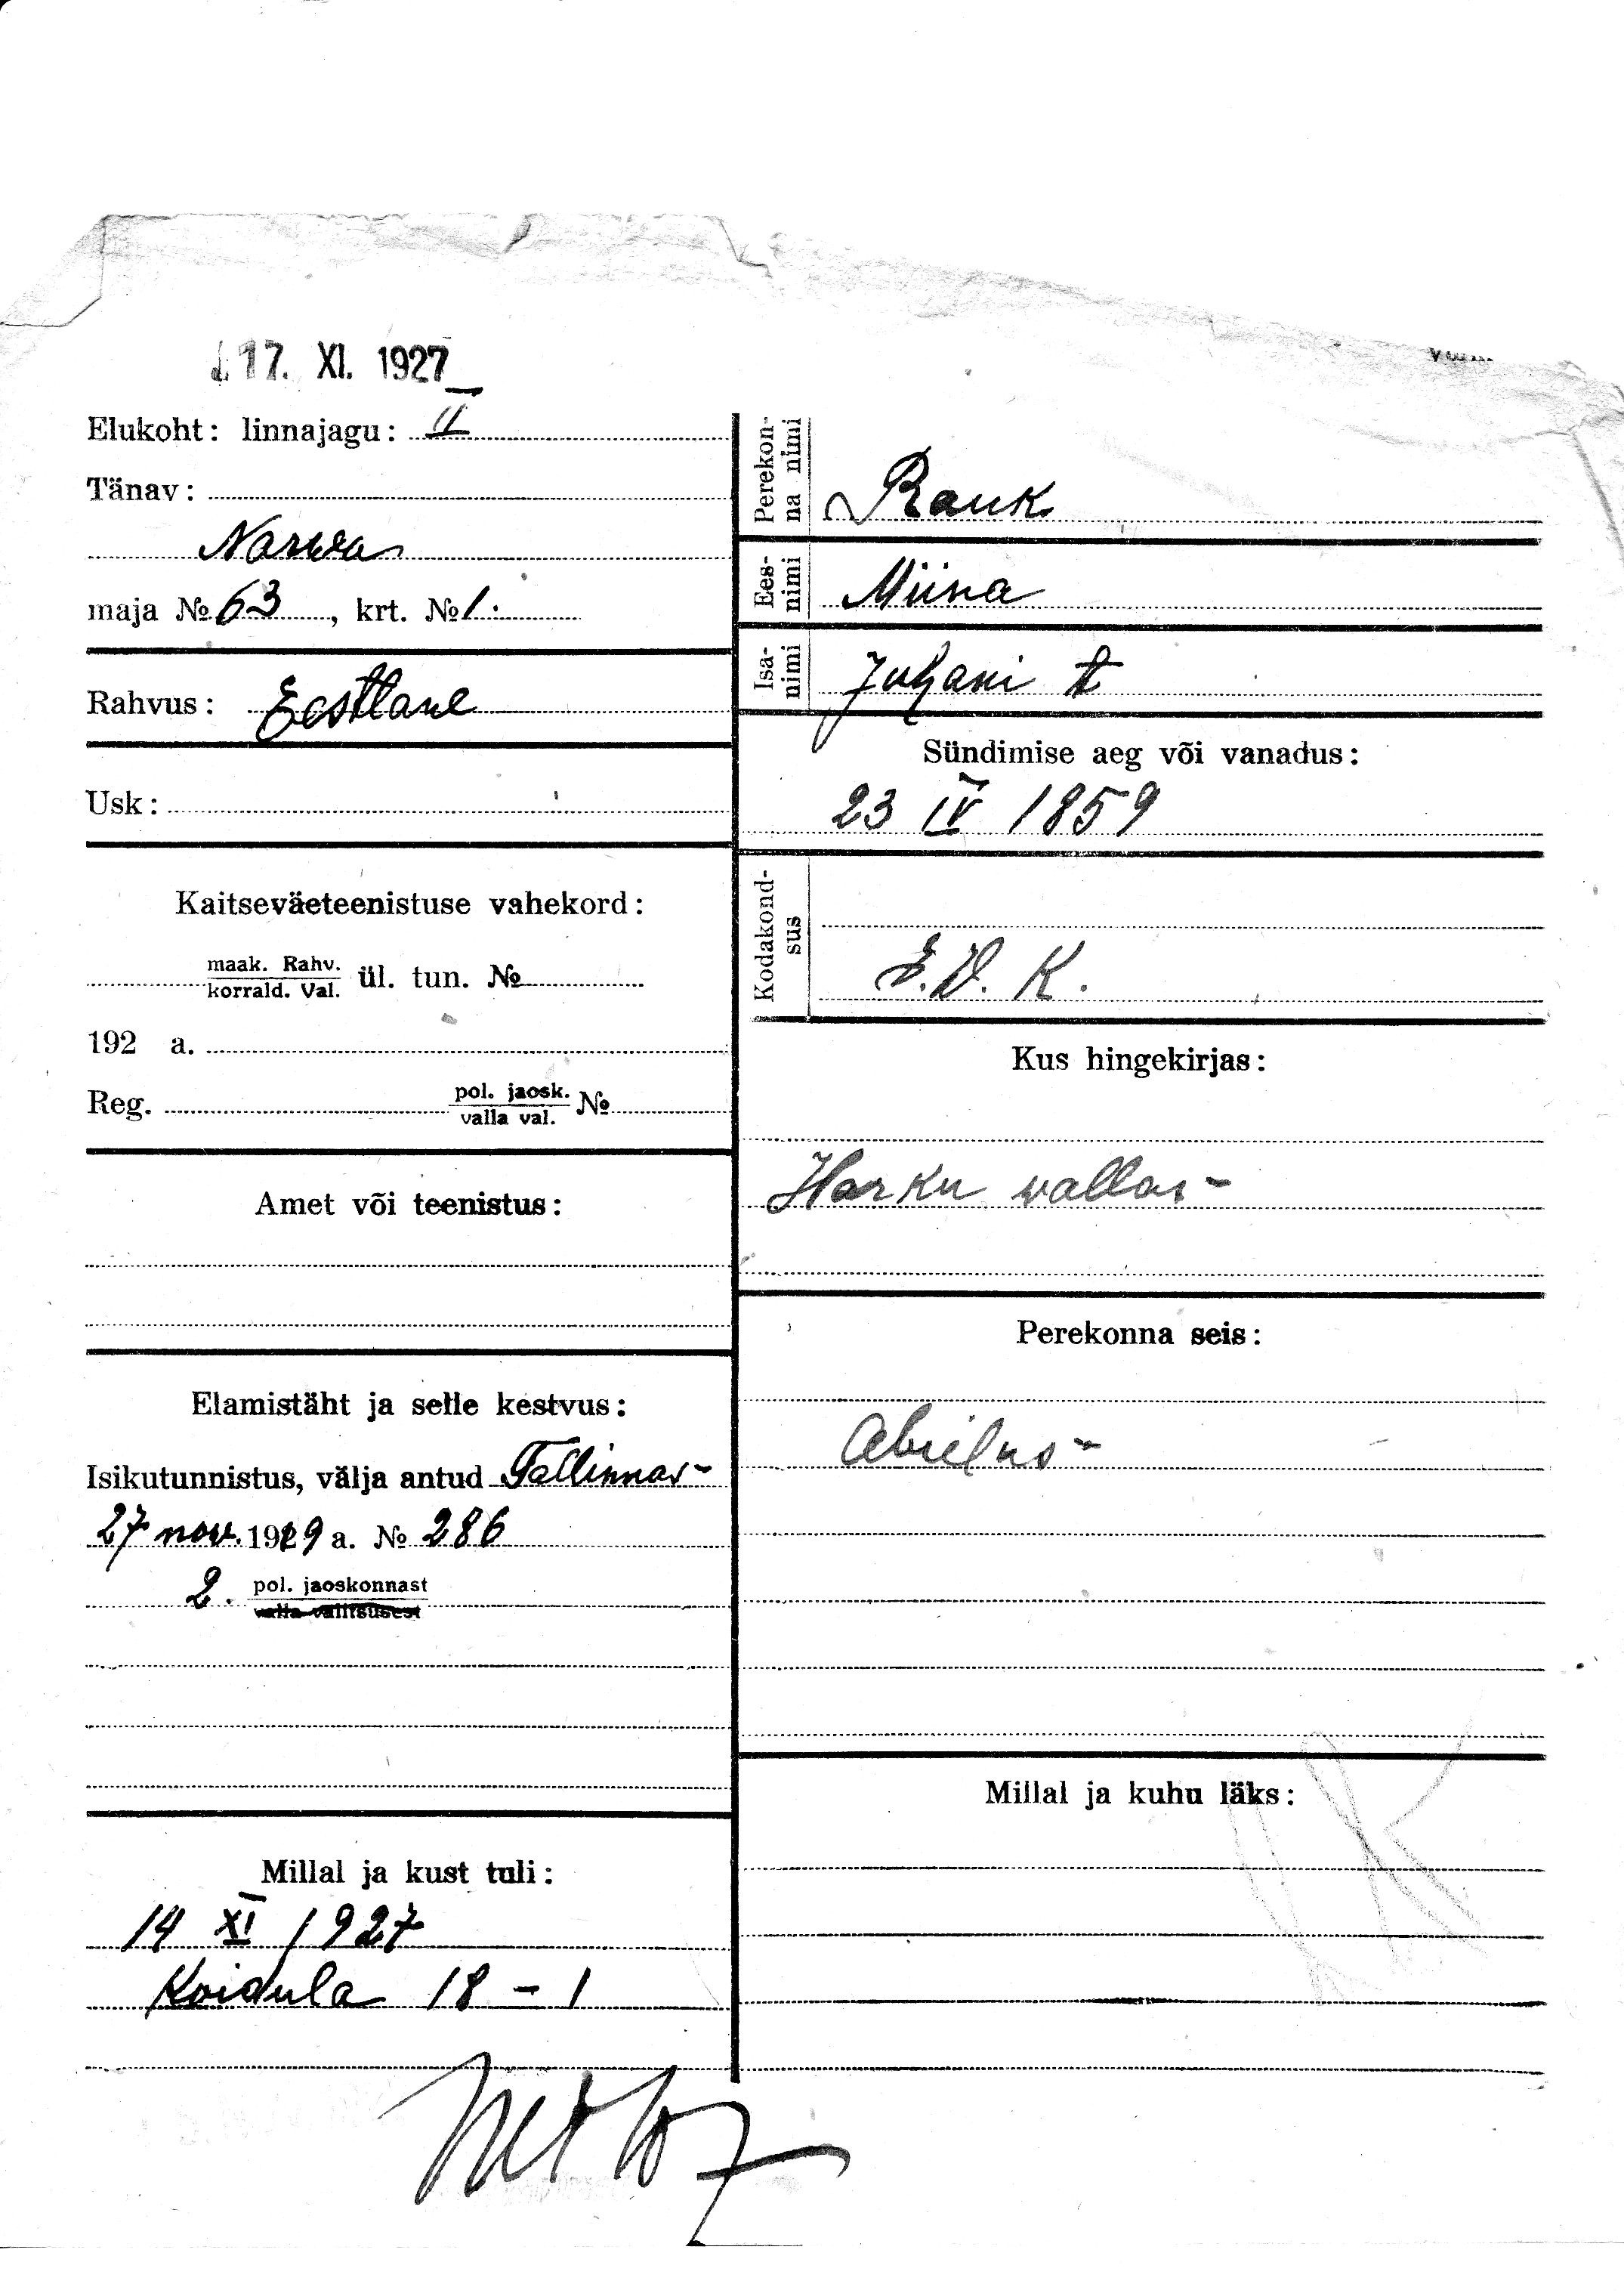 17. XI. 1927
Elukoht: linnajagu: II
Tänav:
Narwa
maja № 63, krt. № 1.
Rahvus: Eestlane
Usk:
Kaitseväeteenistuse vahekord:
maak. Rahv.
korrald. Val. ül. tun. №
192 a.
Reg. pol. jaosk.
valla val. №
Amet või teenistus:
Elamistäht ja selle kestvus:
Isikutunnistus, välja antud Tallinnas-
27 nov. 1919 a. № 286
2. pol. jaoskonnast
valla valitsusest
Millal ja kust tuli:
14 XI 1927
Koidula 18 - 1
Perekon-
na nimi
Rauk
Ees-
nimi
Miina
Isa-
nimi
Juhani t
Sündimise aeg või vanadus:
23 IV 1859
Kodakond-
sus
E.V.K.
Kus hingekirjas:
Harku wallas-
Perekonna seis:
Abielus-
Millal ja kuhu läks: